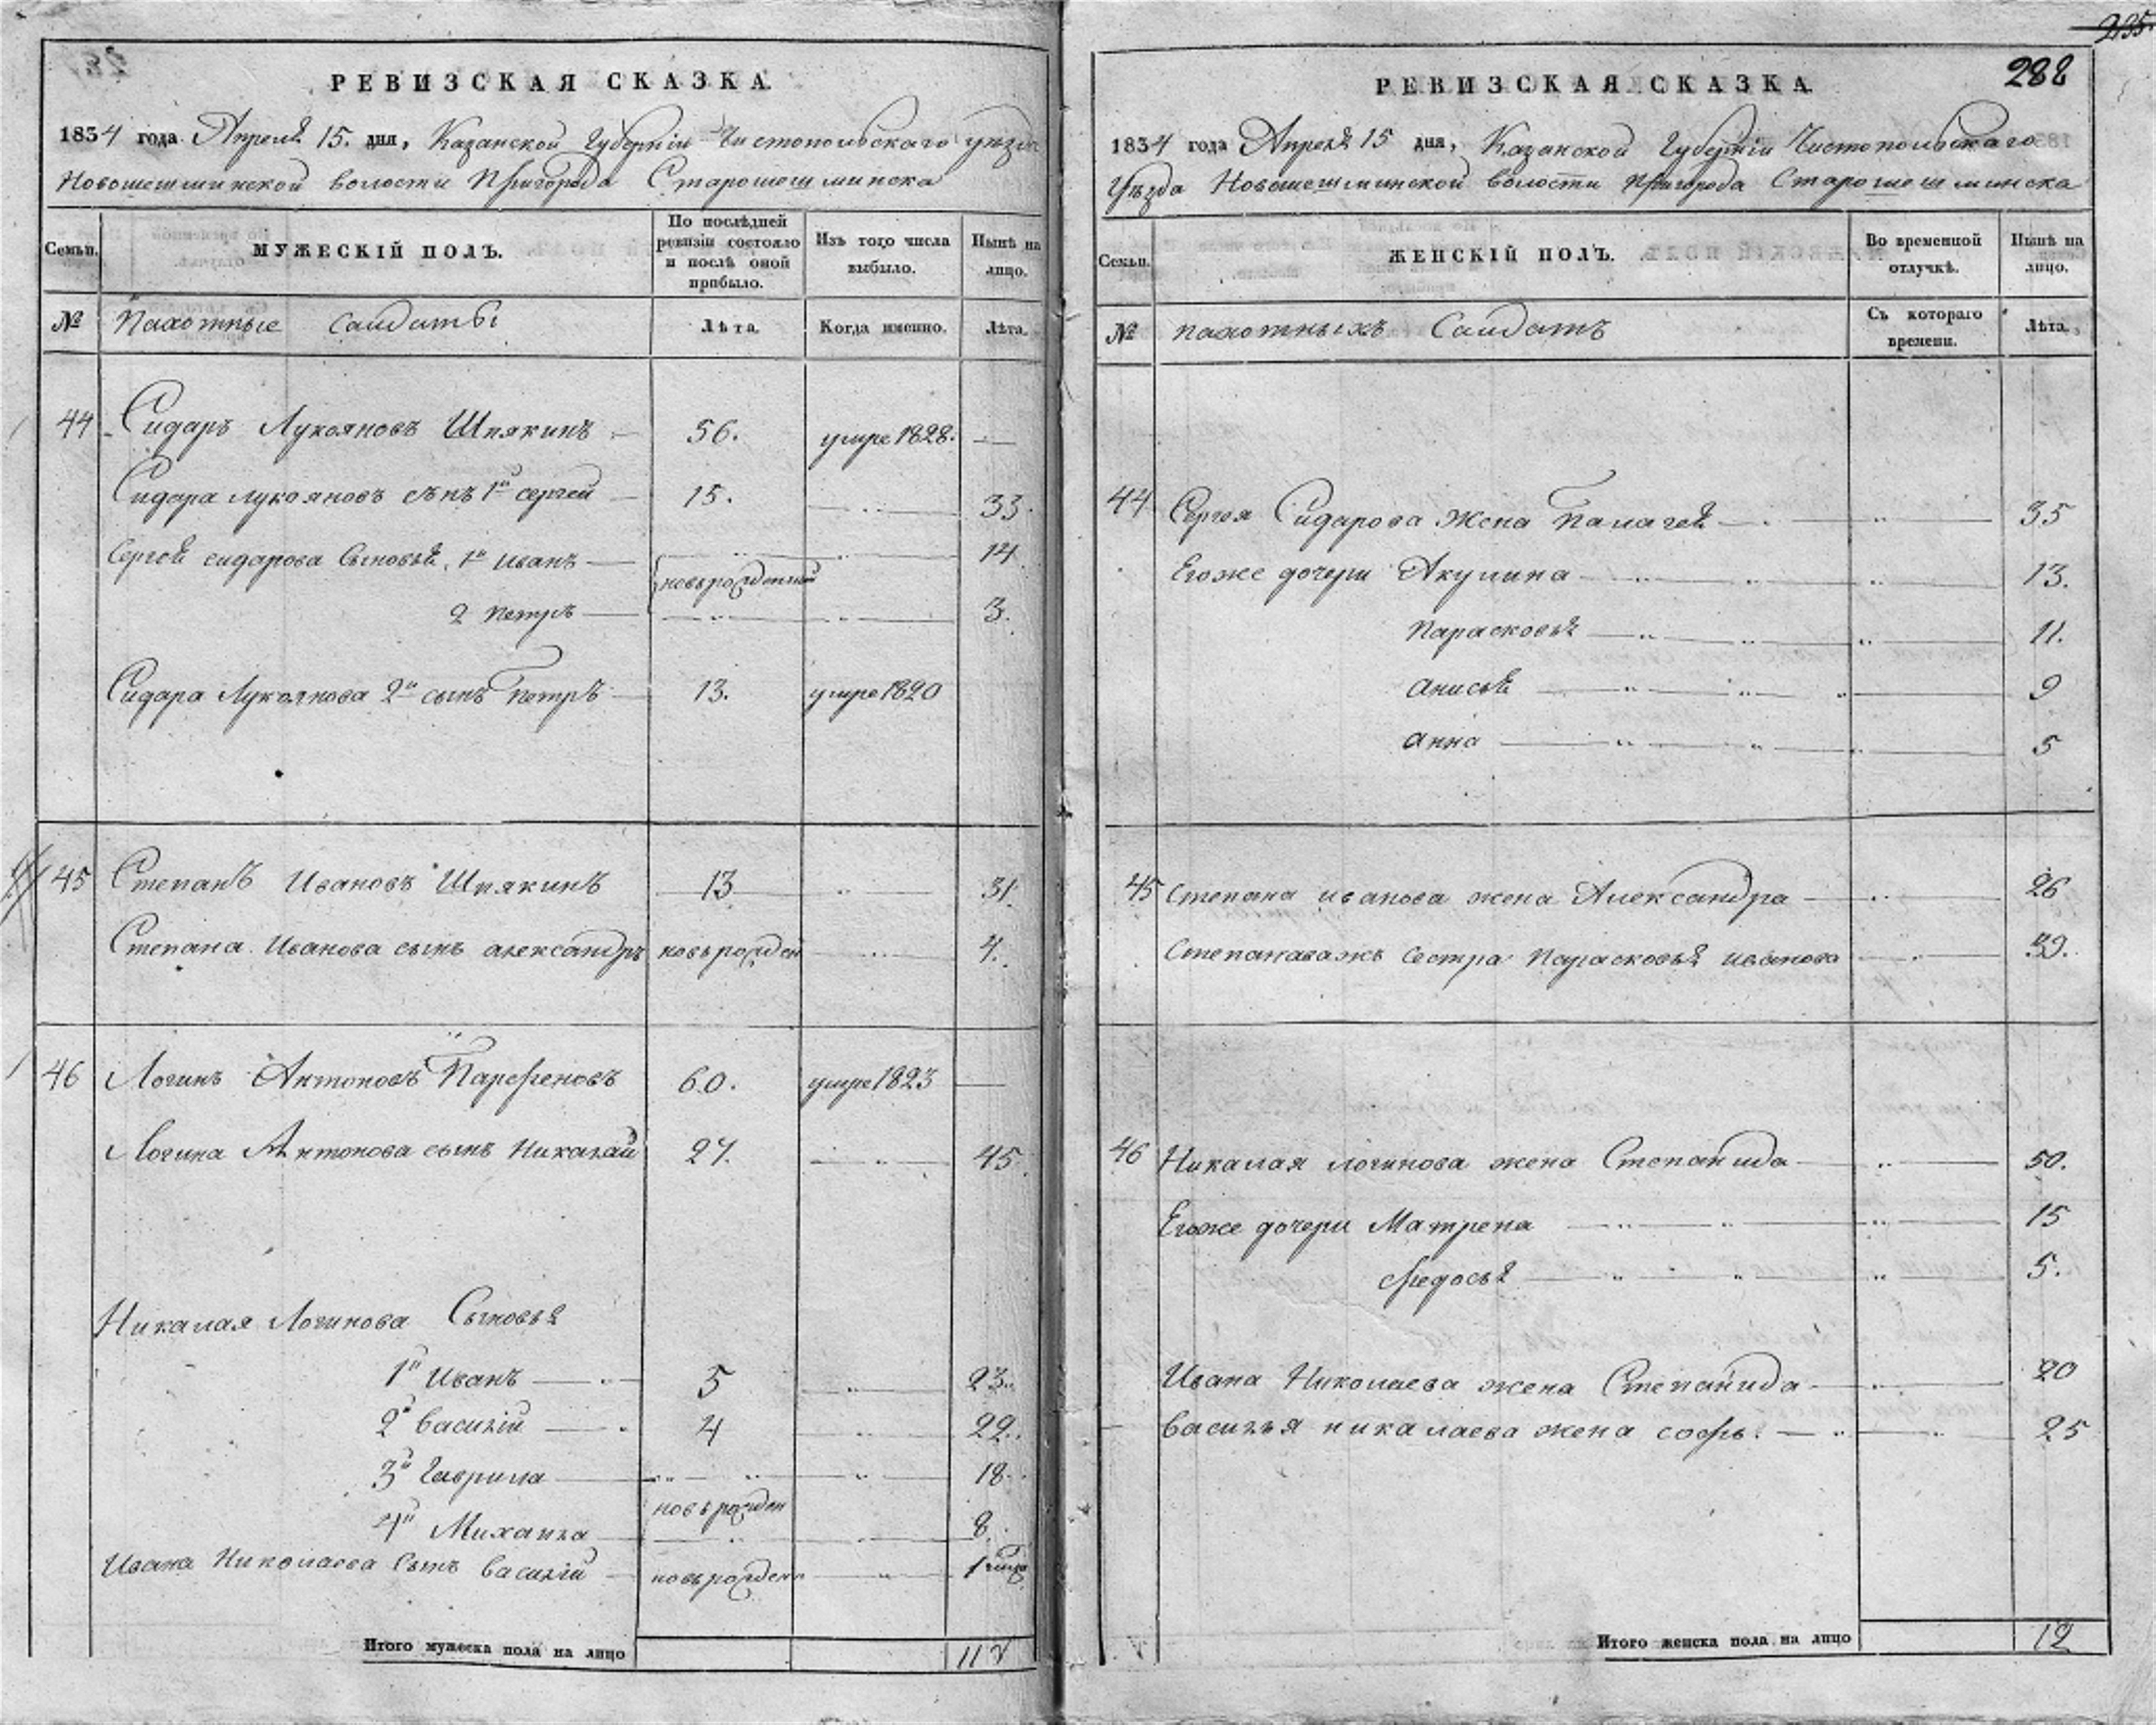 РЕВИЗСКАЯ СКАЗКА.
1834 года Апреля 15. дня, Казанской Губернiи Чистопольскаго уезда
Новошешминской волости Пригорода Старошешминска
Семьи.
МУЖЕСКIЙ ПОЛЪ.
По послѣдней ревизiи состояло и послѣ оной прибыло.
Изъ того числа выбыло.
Нынѣ на лицо.
№ Пахотные Салдаты
Лѣта.
Когда именно.
Лѣта.
44 Сидаръ Лукояновъ Шпякинъ 56. умре 1828.
Сидара Лукояновъ сынъ 1й сергей 15. 33.
Сергей сидарова Сыновья, 1й иванъ 14
новорожденный
2 петръ 3.
Сидара Лукоянова 2й сынъ Петръ 13. умре 1820
45 Степанъ Ивановъ Шпякинъ 13 31.
Степана Иванова сынъ александръ новорожден 4.
46 Логинъ Антоновъ Парфеновъ 60. умре 1823
Логина Антонова сынъ Никалай 27. 45
Никалая Логинова Сыновья
1й Иванъ 5 23.
2й василiй 4 22.
3й Гаврила 18.
новорожден
4й Михайла 8.
Ивана Николаева Сынъ василiй новорожден 1
Итого мужеска пола на лицо 11
235.
288
РЕВИЗСКАЯ СКАЗКА
1834 года Апреля 15 дня, Казанской Губернiи Чистопольскаго
Уѣзда Новошешминской волости Пригорода Старошешминска
Семьи.
ЖЕНСКIЙ ПОЛЪ.
Во временной отлучкѣ.
Нынѣ на лицо.
№ пахотныхъ Салдатъ
Съ котораго времени.
Лѣта.
44 Сергея Сидарова жена Палагея 35
Егоже дочери Акулина 13.
Парасковья 11.
Анисья 9
Анна 5
45 Степана иванова жена Александра 26
сестра Парасковья иванова 39.
46 Никалая логинова жена Степанида 50.
Егоже дочери Матрена 15
Федосья 5.
Ивана Николаева жена Степанида 20
василья никалаева жена софь. 25
Итого женска пола на лицо 12